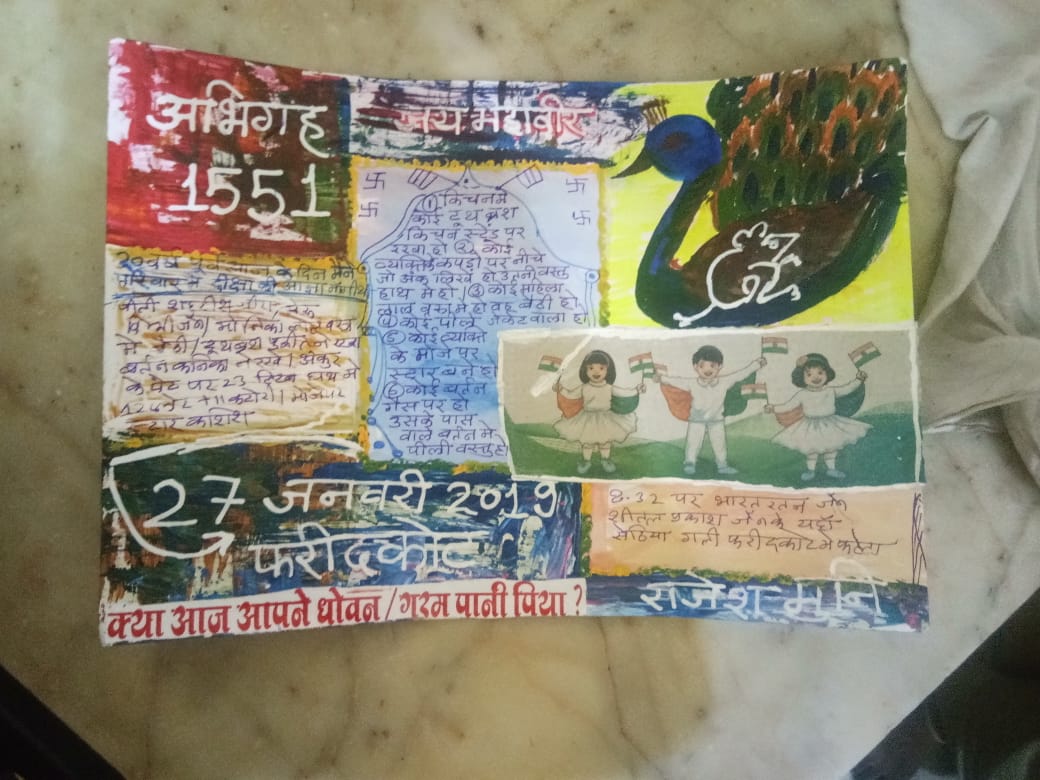 अभिग्रह
1551
जय महावीर
① किचन में
कोई टूथ ब्रश
किचन स्टैंड पर
रखा हो ② कोई
व्यक्ति के कपड़ो पर नीचे
जो अंक लिखे हो उतनी वस्तु
हाथ में हो। ③ कोई महिला
लाल वस्त्र में हो वह बैठी हो
④ कोई पीले जैकेट वाला हो
⑤ कोई व्यक्ति
के मोजे पर
स्टार बने हो
⑥ कोई बर्तन
गैस पर हो
उसके पास
वाले बर्तन में
पीली वस्तु हो
20 वर्ष पूर्व आज के दिन मैंने
परिवार से दीक्षा की आज्ञा
में बैठी / टूथब्रश
बर्तन
के पेट पर 23 हाथ में
+ 11 कटोरी। मोजे पर
स्टार कशिश
27 जनवरी 2019
फरीदकोट
8.32 पर भारत रतन जैन
शीतल प्रकाश जैन के यहाँ
सेठिया गली फरीदकोट में फलेटा
क्या आज आपने धोवन / गरम पानी पिया ?
राजेश मुनि